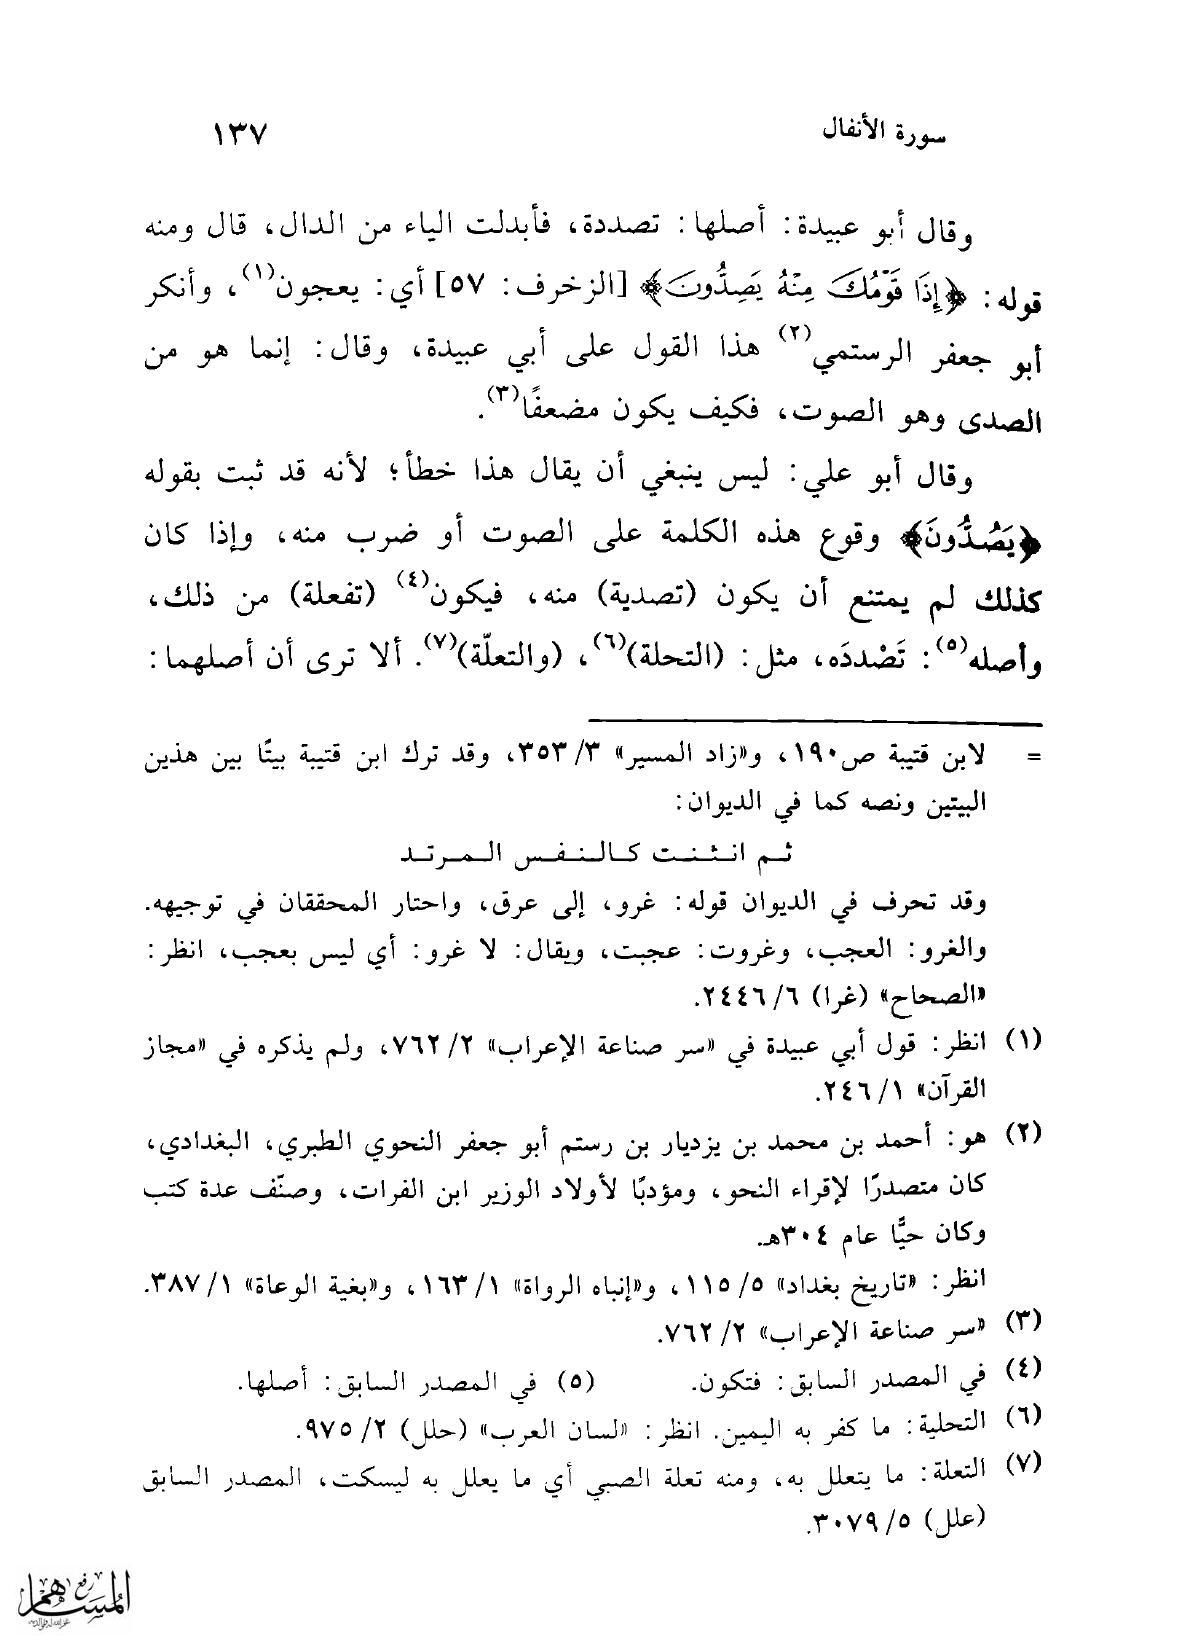 سورة الأنفال ١٣٧
وقال أبو عبيدة: أصلها: تصددة، فأبدلت الياء من الدال، قال ومنه
قوله: ﴿إِذَا قَوْمُكَ مِنْهُ يَصِدُّونَ﴾ [الزخرف: ٥٧] أي: يعجون(١)، وأنكر
أبو جعفر الرستمي(٢) هذا القول على أبي عبيدة، وقال: إنما هو من
الصدى وهو الصوت، فكيف يكون مضعفًا(٣).
وقال أبو علي: ليس ينبغي أن يقال هذا خطأ؛ لأنه قد ثبت بقوله
﴿يَصُدُّونَ﴾ وقوع هذه الكلمة على الصوت أو ضرب منه، وإذا كان
كذلك لم يمتنع أن يكون (تصدية) منه، فيكون(٤) (تفعلة) من ذلك،
وأصله(٥): تَصْدِدَه، مثل: (التحلة)(٦)، (والتعلّة)(٧). ألا ترى أن أصلهما:
= لابن قتيبة ص١٩٠، و«زاد المسير» ٣/ ٣٥٣، وقد ترك ابن قتيبة بيتًا بين هذين
البيتين ونصه كما في الديوان:
ثم انثنت كالنفس المرتد
وقد تحرف في الديوان قوله: غرو، إلى عرق، واحتار المحققان في توجيهه.
والغرو: العجب، وغروت: عجبت، ويقال: لا غرو: أي ليس بعجب، انظر:
«الصحاح» (غرا) ٦/ ٢٤٤٦.
(١) انظر: قول أبي عبيدة في «سر صناعة الإعراب» ٢/ ٧٦٢، ولم يذكره في «مجاز
القرآن» ١/ ٢٤٦.
(٢) هو: أحمد بن محمد بن يزديار بن رستم أبو جعفر النحوي الطبري، البغدادي،
كان متصدرًا لإقراء النحو، ومؤدبًا لأولاد الوزير ابن الفرات، وصنّف عدة كتب
وكان حيًّا عام ٣٠٤هـ.
انظر: «تاريخ بغداد» ٥/ ١١٥، و«إنباه الرواة» ١/ ١٦٣، و«بغية الوعاة» ١/ ٣٨٧.
(٣) «سر صناعة الإعراب» ٢/ ٧٦٢.
(٤) في المصدر السابق: فتكون. (٥) في المصدر السابق: أصلها.
(٦) التحلية: ما كفر به اليمين. انظر: «لسان العرب» (حلل) ٢/ ٩٧٥.
(٧) التعلة: ما يتعلل به، ومنه تعلة الصبي أي ما يعلل به ليسكت، المصدر السابق
(علل) ٥/ ٣٠٧٩.
رفع
المساهم